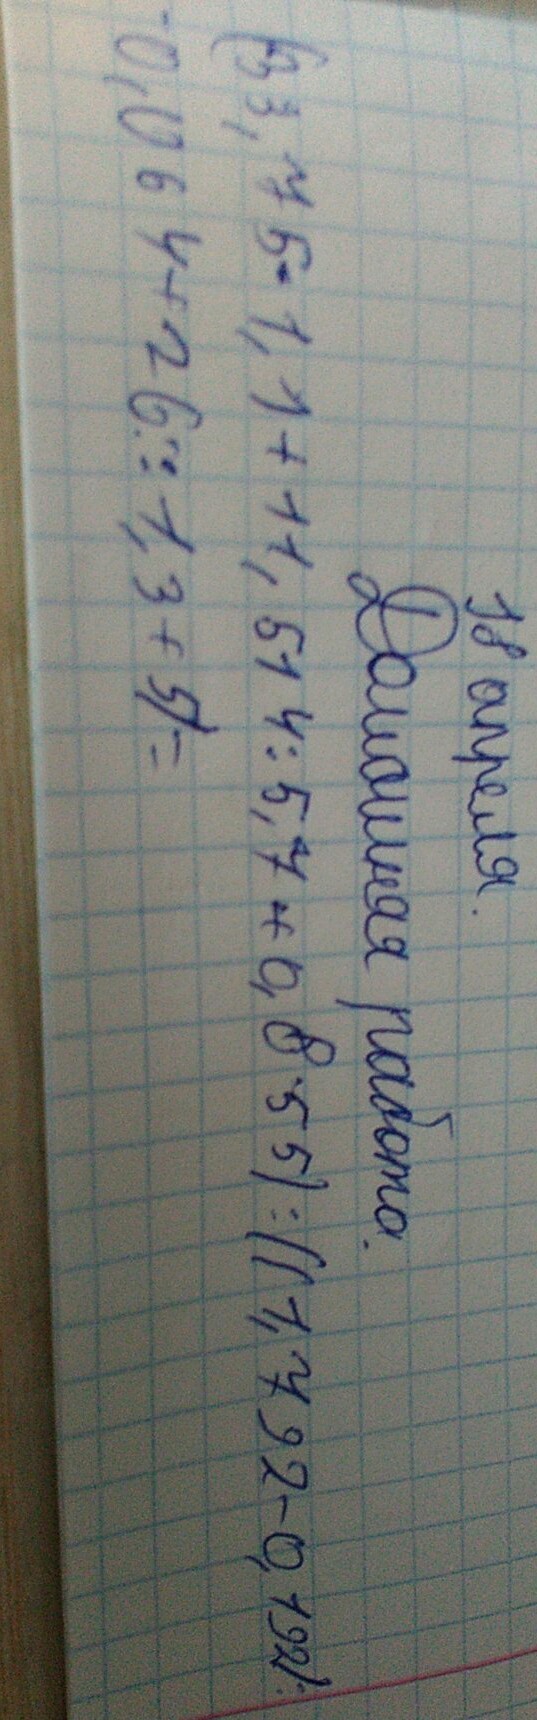 18 апреля.
Домашная работа.
(33,75·1,1+11,514:5,7+0,855):((1,792-0,192):
·0,064+26:1,3+5)=